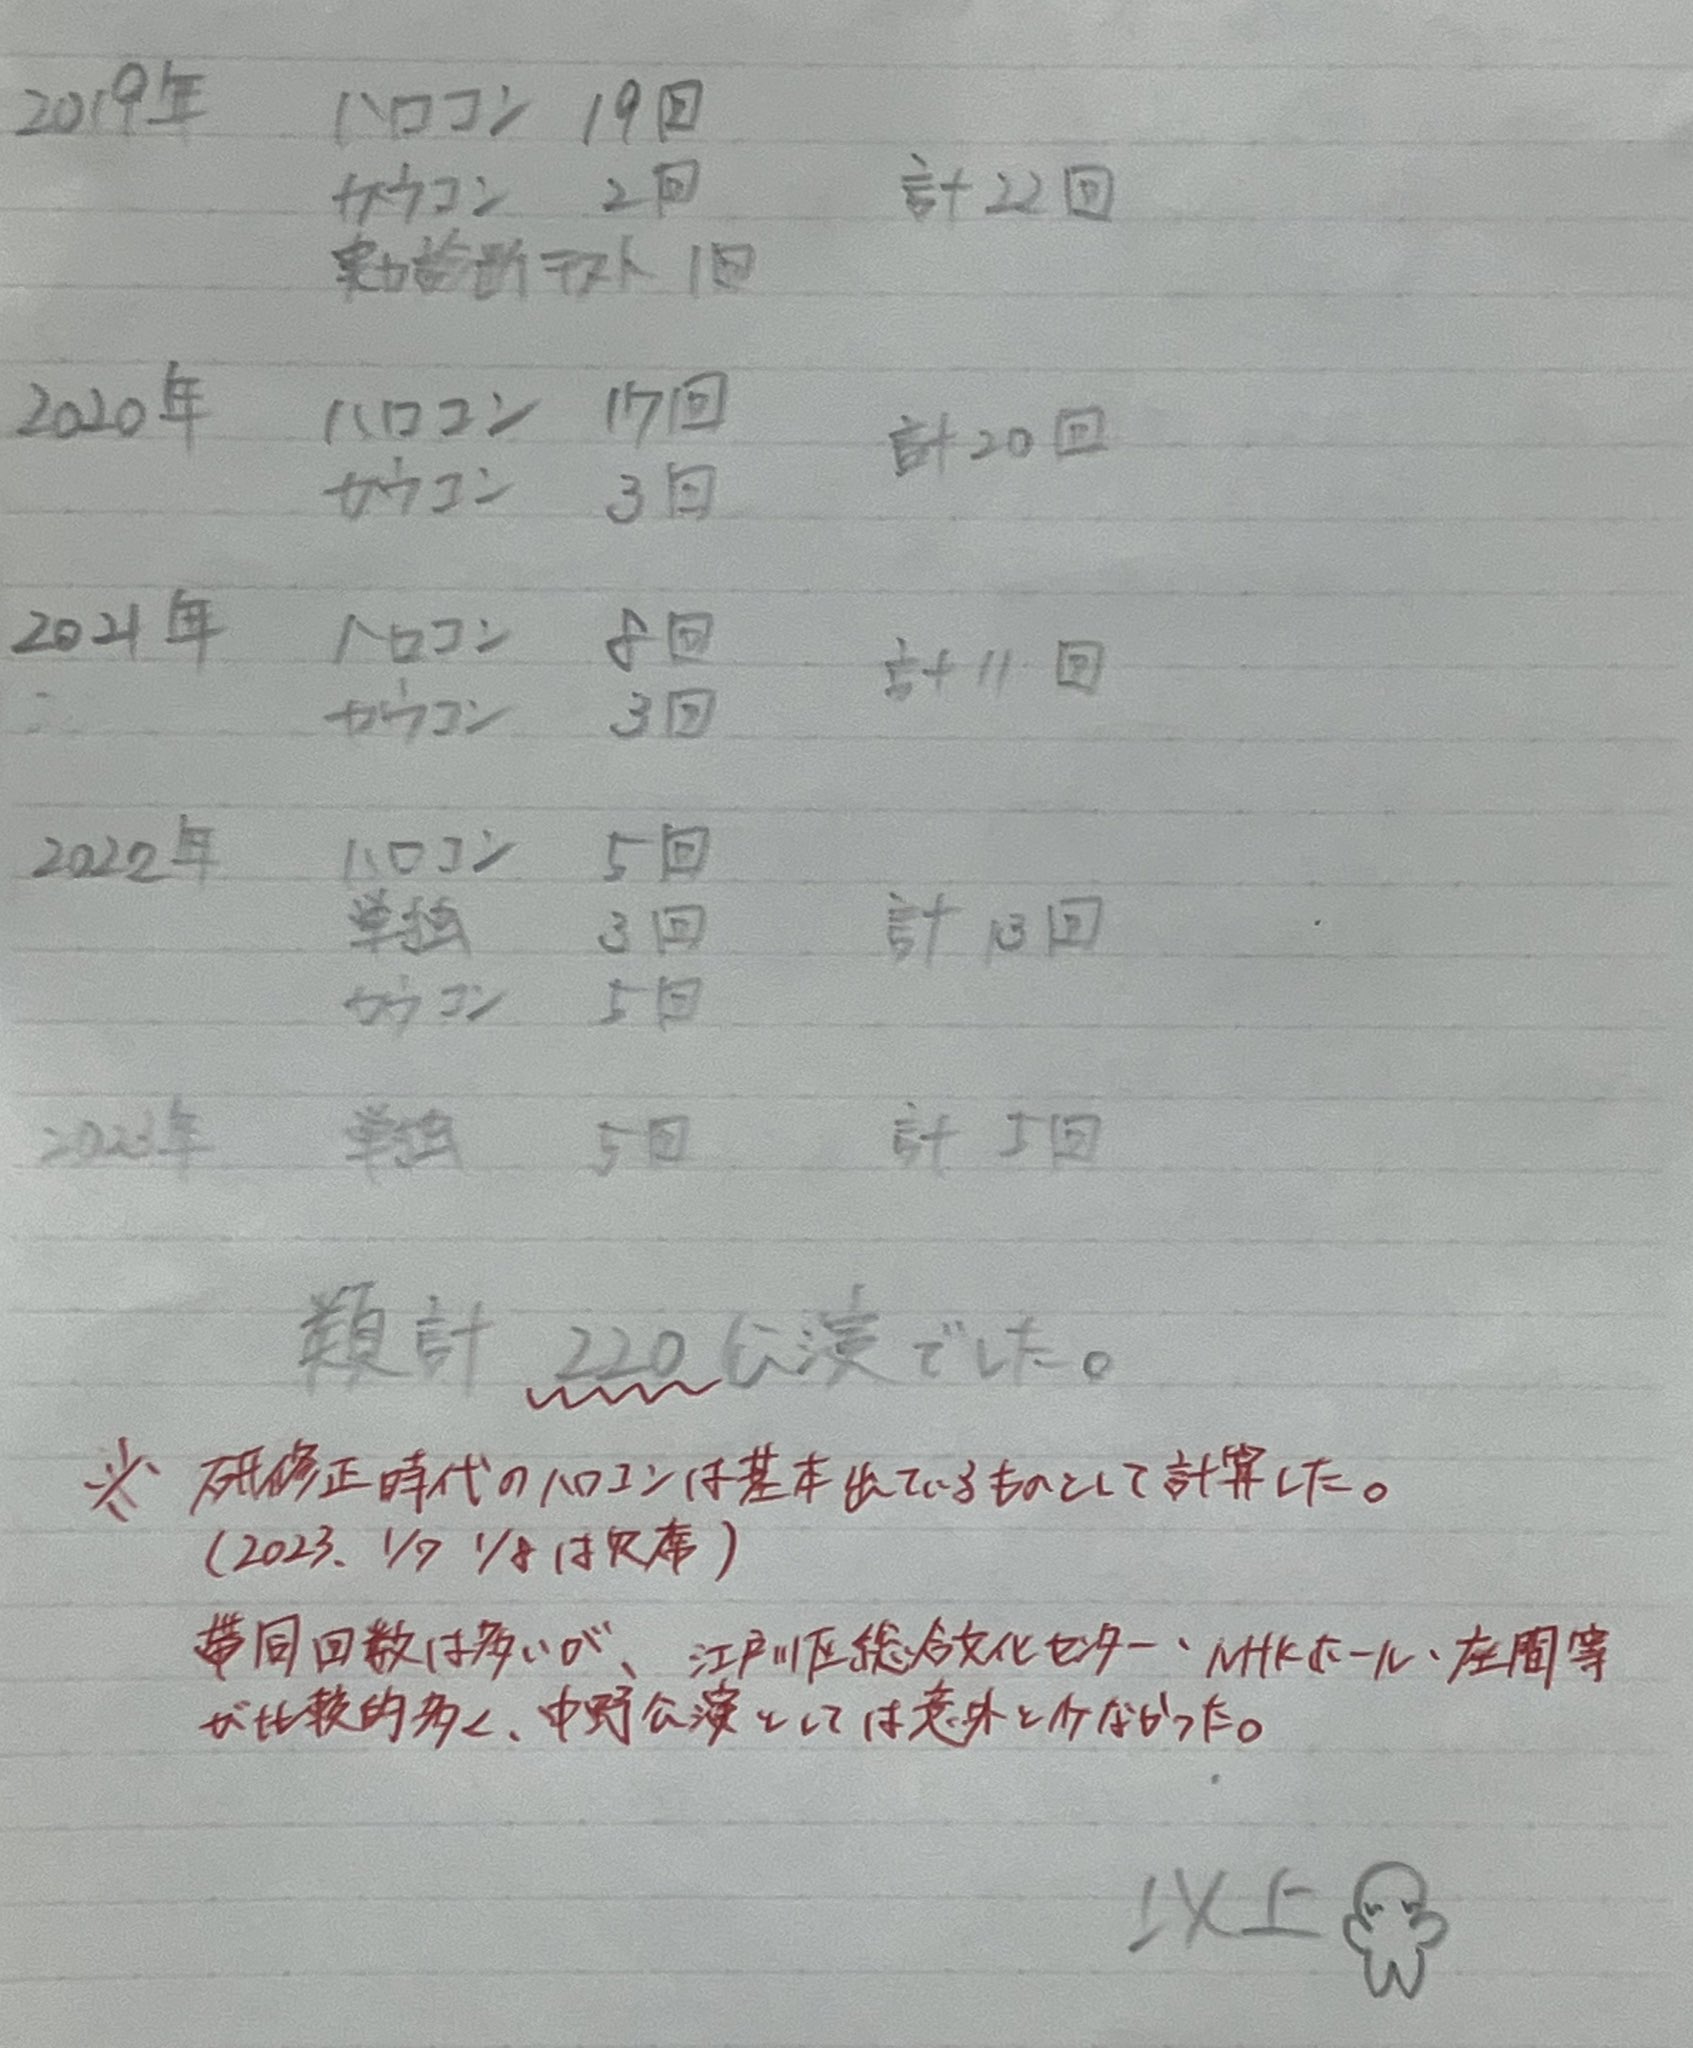 2019年 ハロコン 19回
カウコン 2回 計22回
実力診断テスト 1回
2020年 ハロコン 17回 計20回
カウコン 3回
2021年 ハロコン 8回 計11回
カウコン 3回
2022年 ハロコン 5回
単独 3回 計13回
カウコン 5回
2023年 単独 5回 計5回
類計 220公演でした。
※ 研修正時代のハロコンは基本出ているものとして計算した。
(2023. 1/7 1/8は欠席)
帯同回数は多いが、江戸川区総合文化センター、NHKホール、座間等
が比較的多く、中野公演としては意外と少なかった。
以上